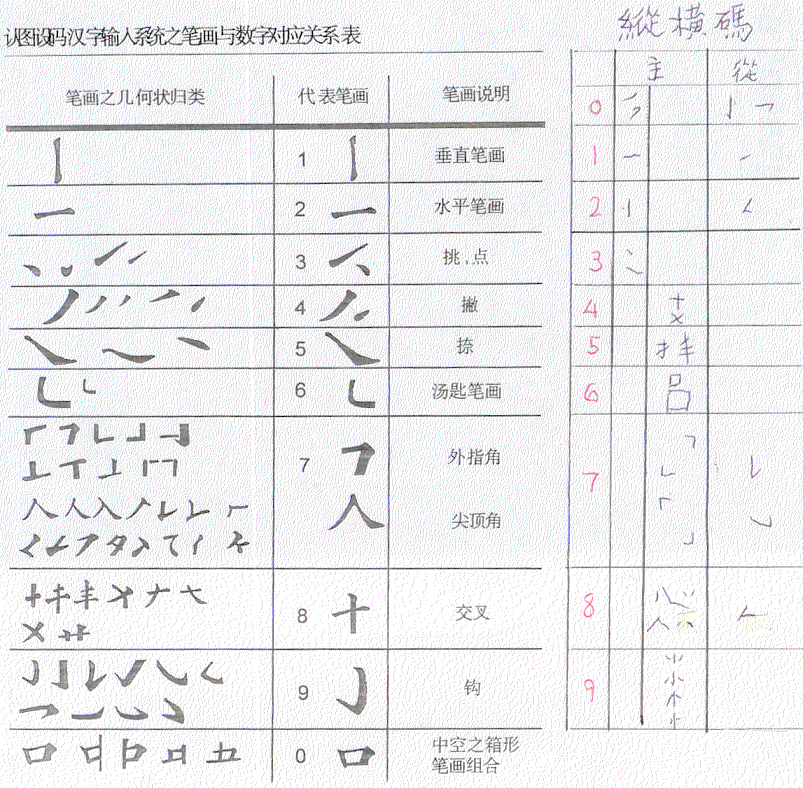 认图设码汉字输入系统之笔画与数字对应关系表
笔画之几何状归类 代表笔画 笔画说明
1 丨 垂直笔画
2 一 水平笔画
3 挑,点
4 撇
5 捺
6 汤匙笔画
7 外指角
人 尖顶角
8 十 交叉
9 钩
0 口 中空之箱形
笔画组合
縱橫碼
主 從
0
1
2
3
4 十
乂
5
6
7
8
9